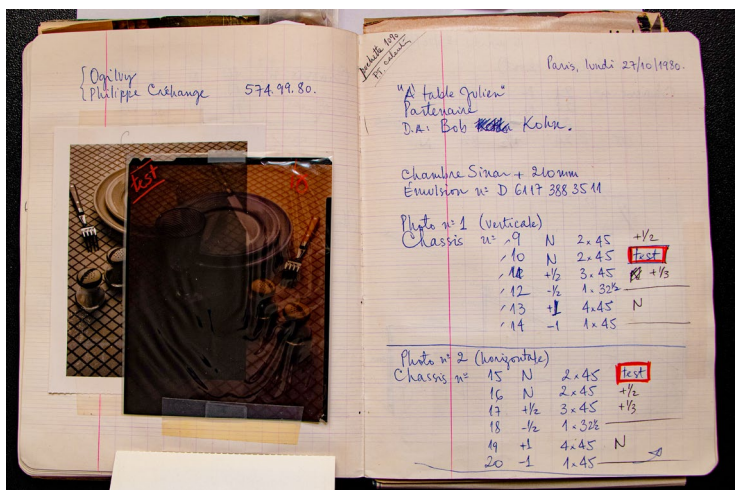 { Ogilvy
{ Philippe Créhange 574.99.80.
test
pochette 1090
Paris, lundi 27/10/1980.
"A table Julien"
Partenaire
D.A: Bob Kohn.
Chambre Sinar + 210mm
Émulsion n= D 6117 388 3511
Photo n=1 (verticale)
Chassis n= 9 N 2x45 +1/2
10 N 2x45 test
11 +1/2 3x45 +1/3
12 -1/2 1x32½
13 +1 4x45 N
14 -1 1x45
Photo n=2 (horizontale)
Chassis n= 15 N 2x45 test
16 N 2x45 +1/2
17 +1/2 3x45 +1/3
18 -1/2 1x32½
19 +1 4x45 N
20 -1 1x45